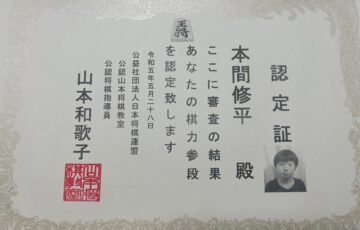 王将
認定証
本間修平 殿
ここに審査の結果
あなたの棋力参段
を認定致します
令和五年五月二十八日
公益社団法人日本将棋連盟
公認山本将棋教室
公認将棋指導員
山本和歌子